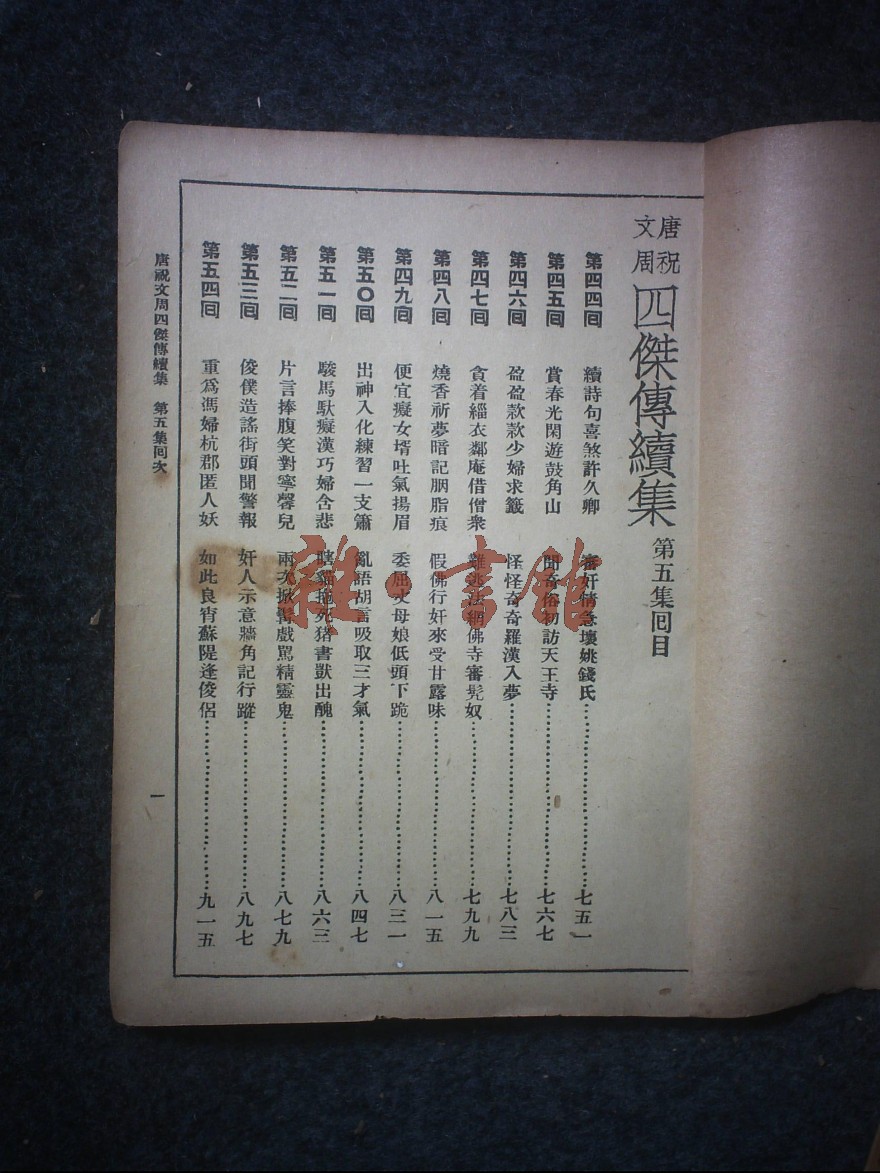 唐祝文周四傑傳續集 第五集囘目
第四四囘 續詩句喜煞許久卿 審奸情急壞姚錢氏 七五一
第四五囘 賞春光閑遊鼓角山 聞奇俗初訪天王寺 七六七
第四六囘 盈盈款款少婦求籤 怪怪奇奇羅漢入夢 七八三
第四七囘 貪着緇衣鄰庵借僧衆 難逃法網佛寺審髡奴 七九九
第四八囘 燒香祈夢暗記胭脂痕 假佛行奸來受甘露味 八一五
第四九囘 便宜癡女壻吐氣揚眉 委屈丈母娘低頭下跪 八三一
第五〇囘 出神入化練習一支簫 亂語胡言吸取三才氣 八四七
第五一囘 駿馬馱癡漢巧婦含悲 瞎貓拖死猪書獃出醜 八六三
第五二囘 片言捧腹笑對寧馨兒 兩次掀髯戲駡精靈鬼 八七九
第五三囘 俊僕造謠街頭聞警報 奸人示意牆角記行蹤 八九七
第五四囘 重爲馮婦杭郡匿人妖 如此良宵蘇隄逢俊侶 九一五
唐祝文周四傑傳續集 第五集囘次
一
雜·書館